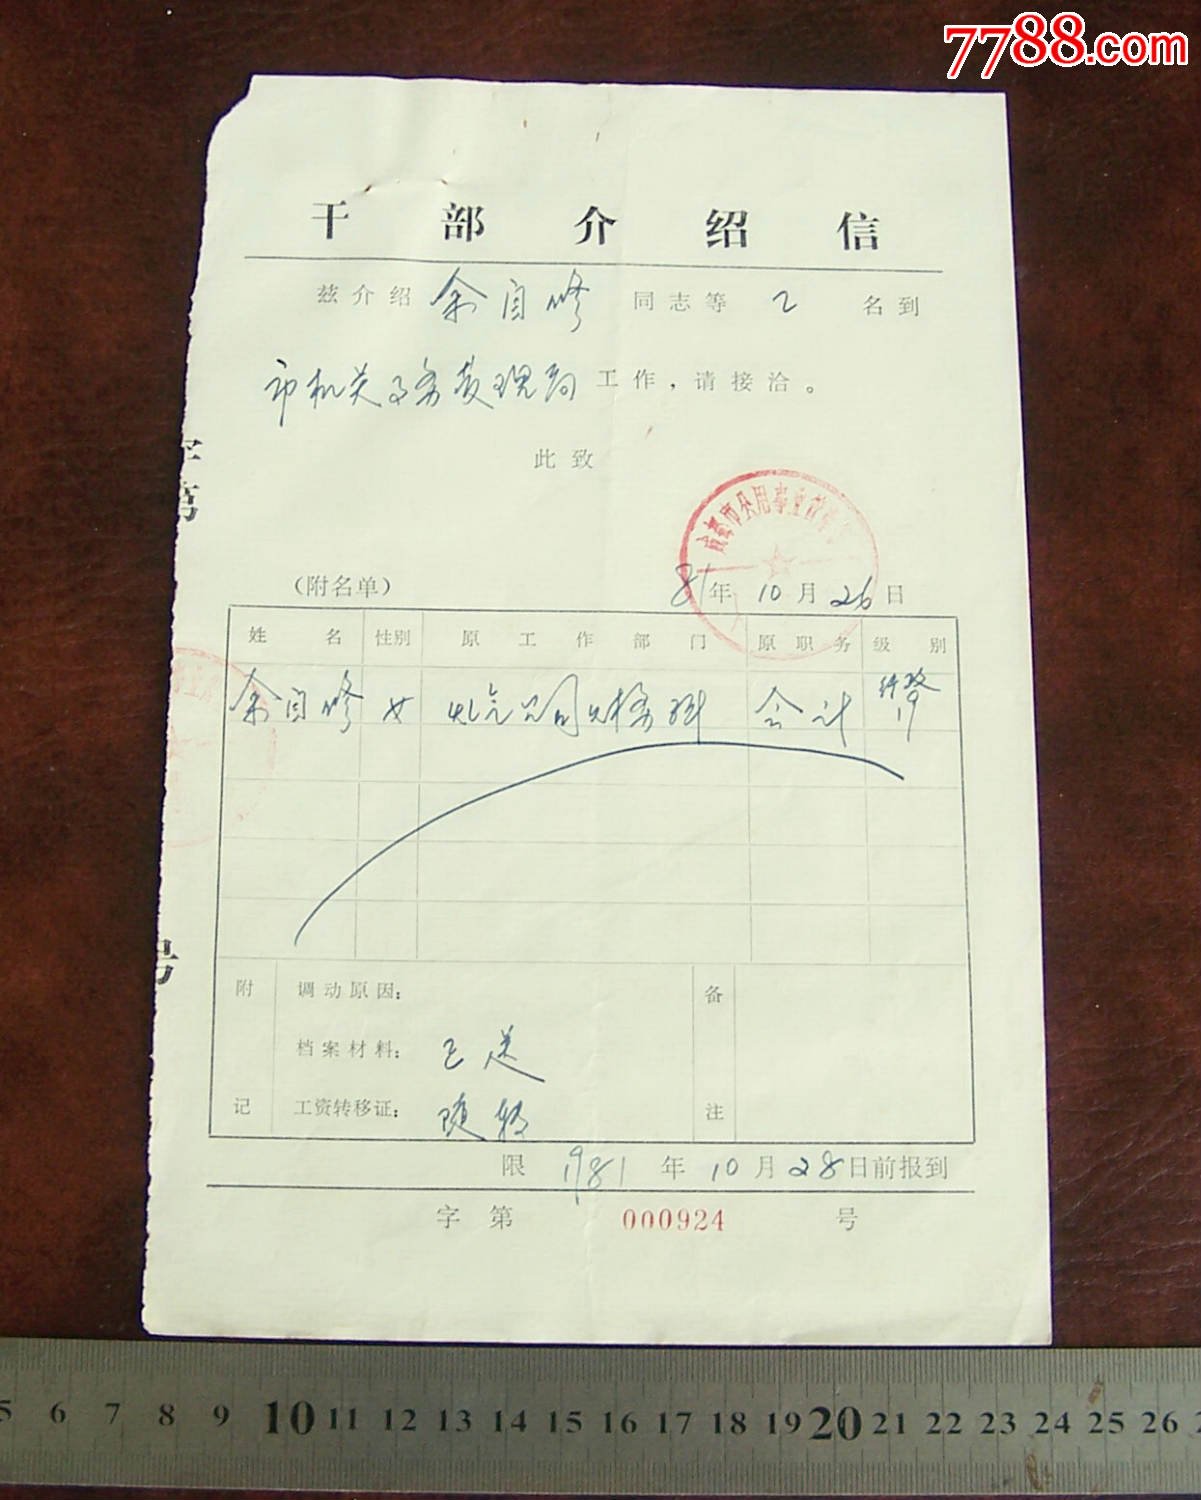 7788.com
干部介绍信
兹介绍 余自修 同志等 乙 名到
市机关事务管理局 工作，请接洽。
此致
成都市公用事业
字第
81年10月26日
(附名单)
姓名 性别 原工作部门 原职务 级别
余自修 女 公司 科 会计 行政
附 调动原因： 备
档案材料： 已送
记 工资转移证： 随转 注
号
限 1981年10月28日前报到
字第 000924 号
5 6 7 8 9 10 11 12 13 14 15 16 17 18 19 20 21 22 23 24 25 26